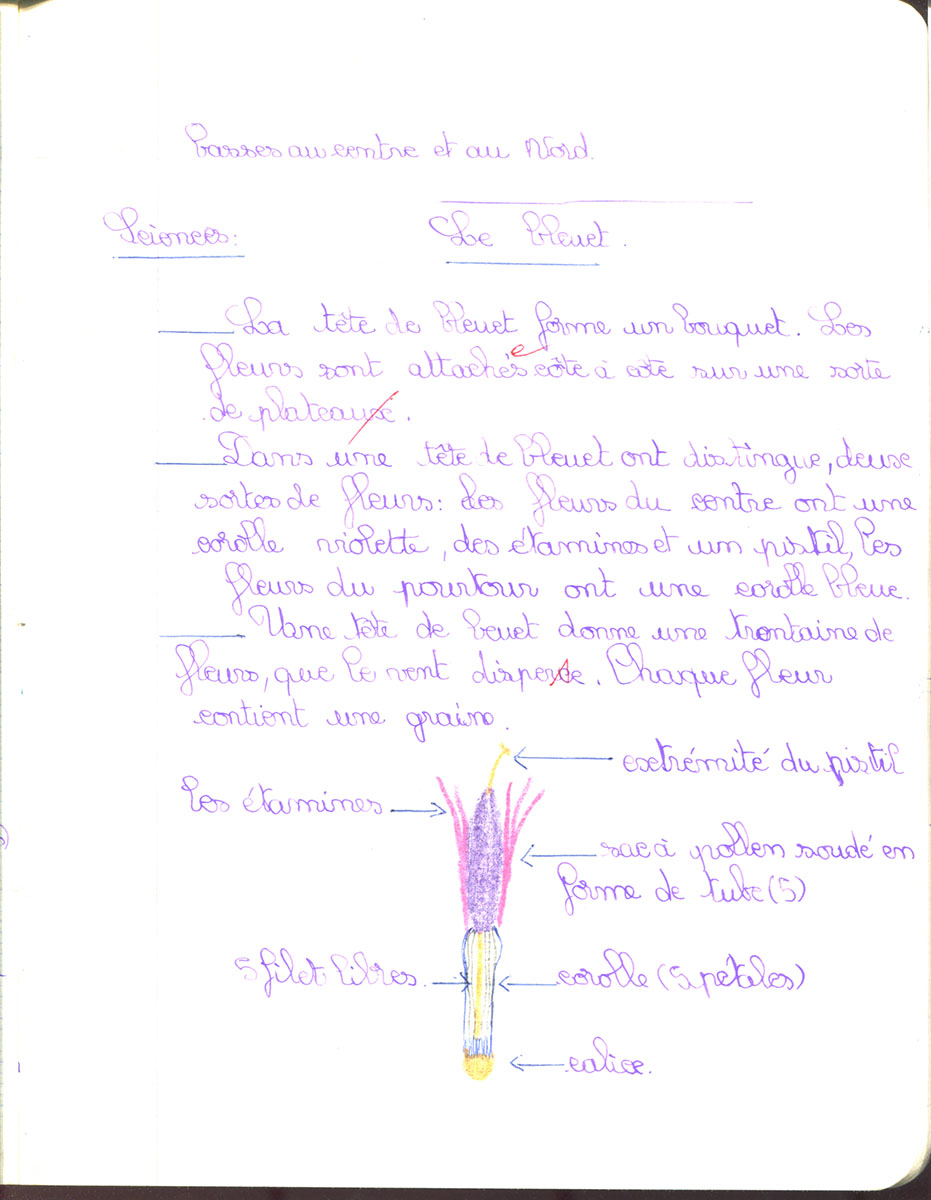 basses au centre et au Nord.
Sciences: Le bleuet.
La tête de bleuet forme un bouquet. Les
fleurs sont attachées côte à côte sur une sorte
de plateaux.
Dans une tête de bleuet ont distingue, deux
sortes de fleurs: Les fleurs du centre ont une
corolle violette, des étamines et un pistil, les
fleurs du pourtour ont une corolle bleue.
Une tête de beuet donne une trentaine de
fleurs, que le vent disperse. Chaque fleur
contient une graine.
extrémité du pistil
les étamines
sac à pollen soudé en
forme de tube (5)
5 filet libres. corolle (5 pétales)
calice.